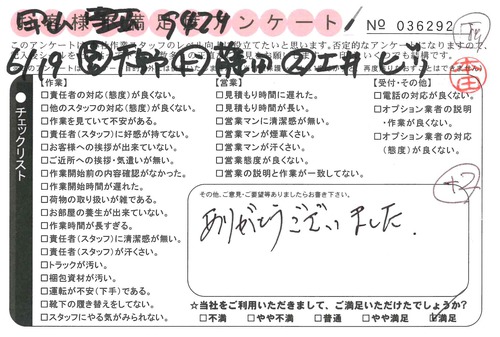 お客様満足度アンケート
No 036292
チェックリスト
【作業】
□責任者の対応(態度)が良くない。
□他のスタッフの対応(態度)が良くない。
□作業を見ていて不安がある。
□責任者(スタッフ)に好感が持てない。
□お客様への挨拶が出来ていない。
□ご近所への挨拶・気遣いが無い。
□作業開始前の内容確認がなかった。
□作業開始時間が遅れた。
□荷物の取り扱いが雑である。
□お部屋の養生が出来ていない。
□作業時間が長すぎる。
□責任者(スタッフ)に清潔感が無い。
□責任者(スタッフ)が汗くさい。
□トラックが汚い。
□梱包資材が汚い。
□運転が不安(下手)である。
□靴下の履き替えをしてない。
□スタッフにやる気がみられない。
【営業】
□見積もり時間に遅れた。
□見積もり時間が長い。
□営業マンに清潔感が無い。
□営業マンが煙草くさい。
□営業マンが汗くさい。
□営業態度が良くない。
□営業の説明と作業が一致してない。
【受付・その他】
□電話の対応が良くない。
□オプション業者の説明
・作業が良くない。
□オプション業者の対応
(態度)が良くない。
その他、ご意見・ご要望等ありましたらお書き下さい。
ありがとうございました.
+2
☆当社をご利用いただきまして、ご満足いただけたでしょうか?
□不満 □やや不満 □普通 □やや満足 □満足